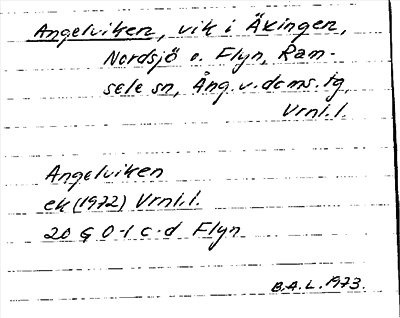 Angelviken, vik i Äxingen,
Nordsjö o. Flyn, Ram-
sele sn, Ång.v.dcms.tg,
Vrnl.l.
Angelviken
ek (1972) Vrnl.l.
20 G 0-1 c-d Flyn
B.A.L. 1973.